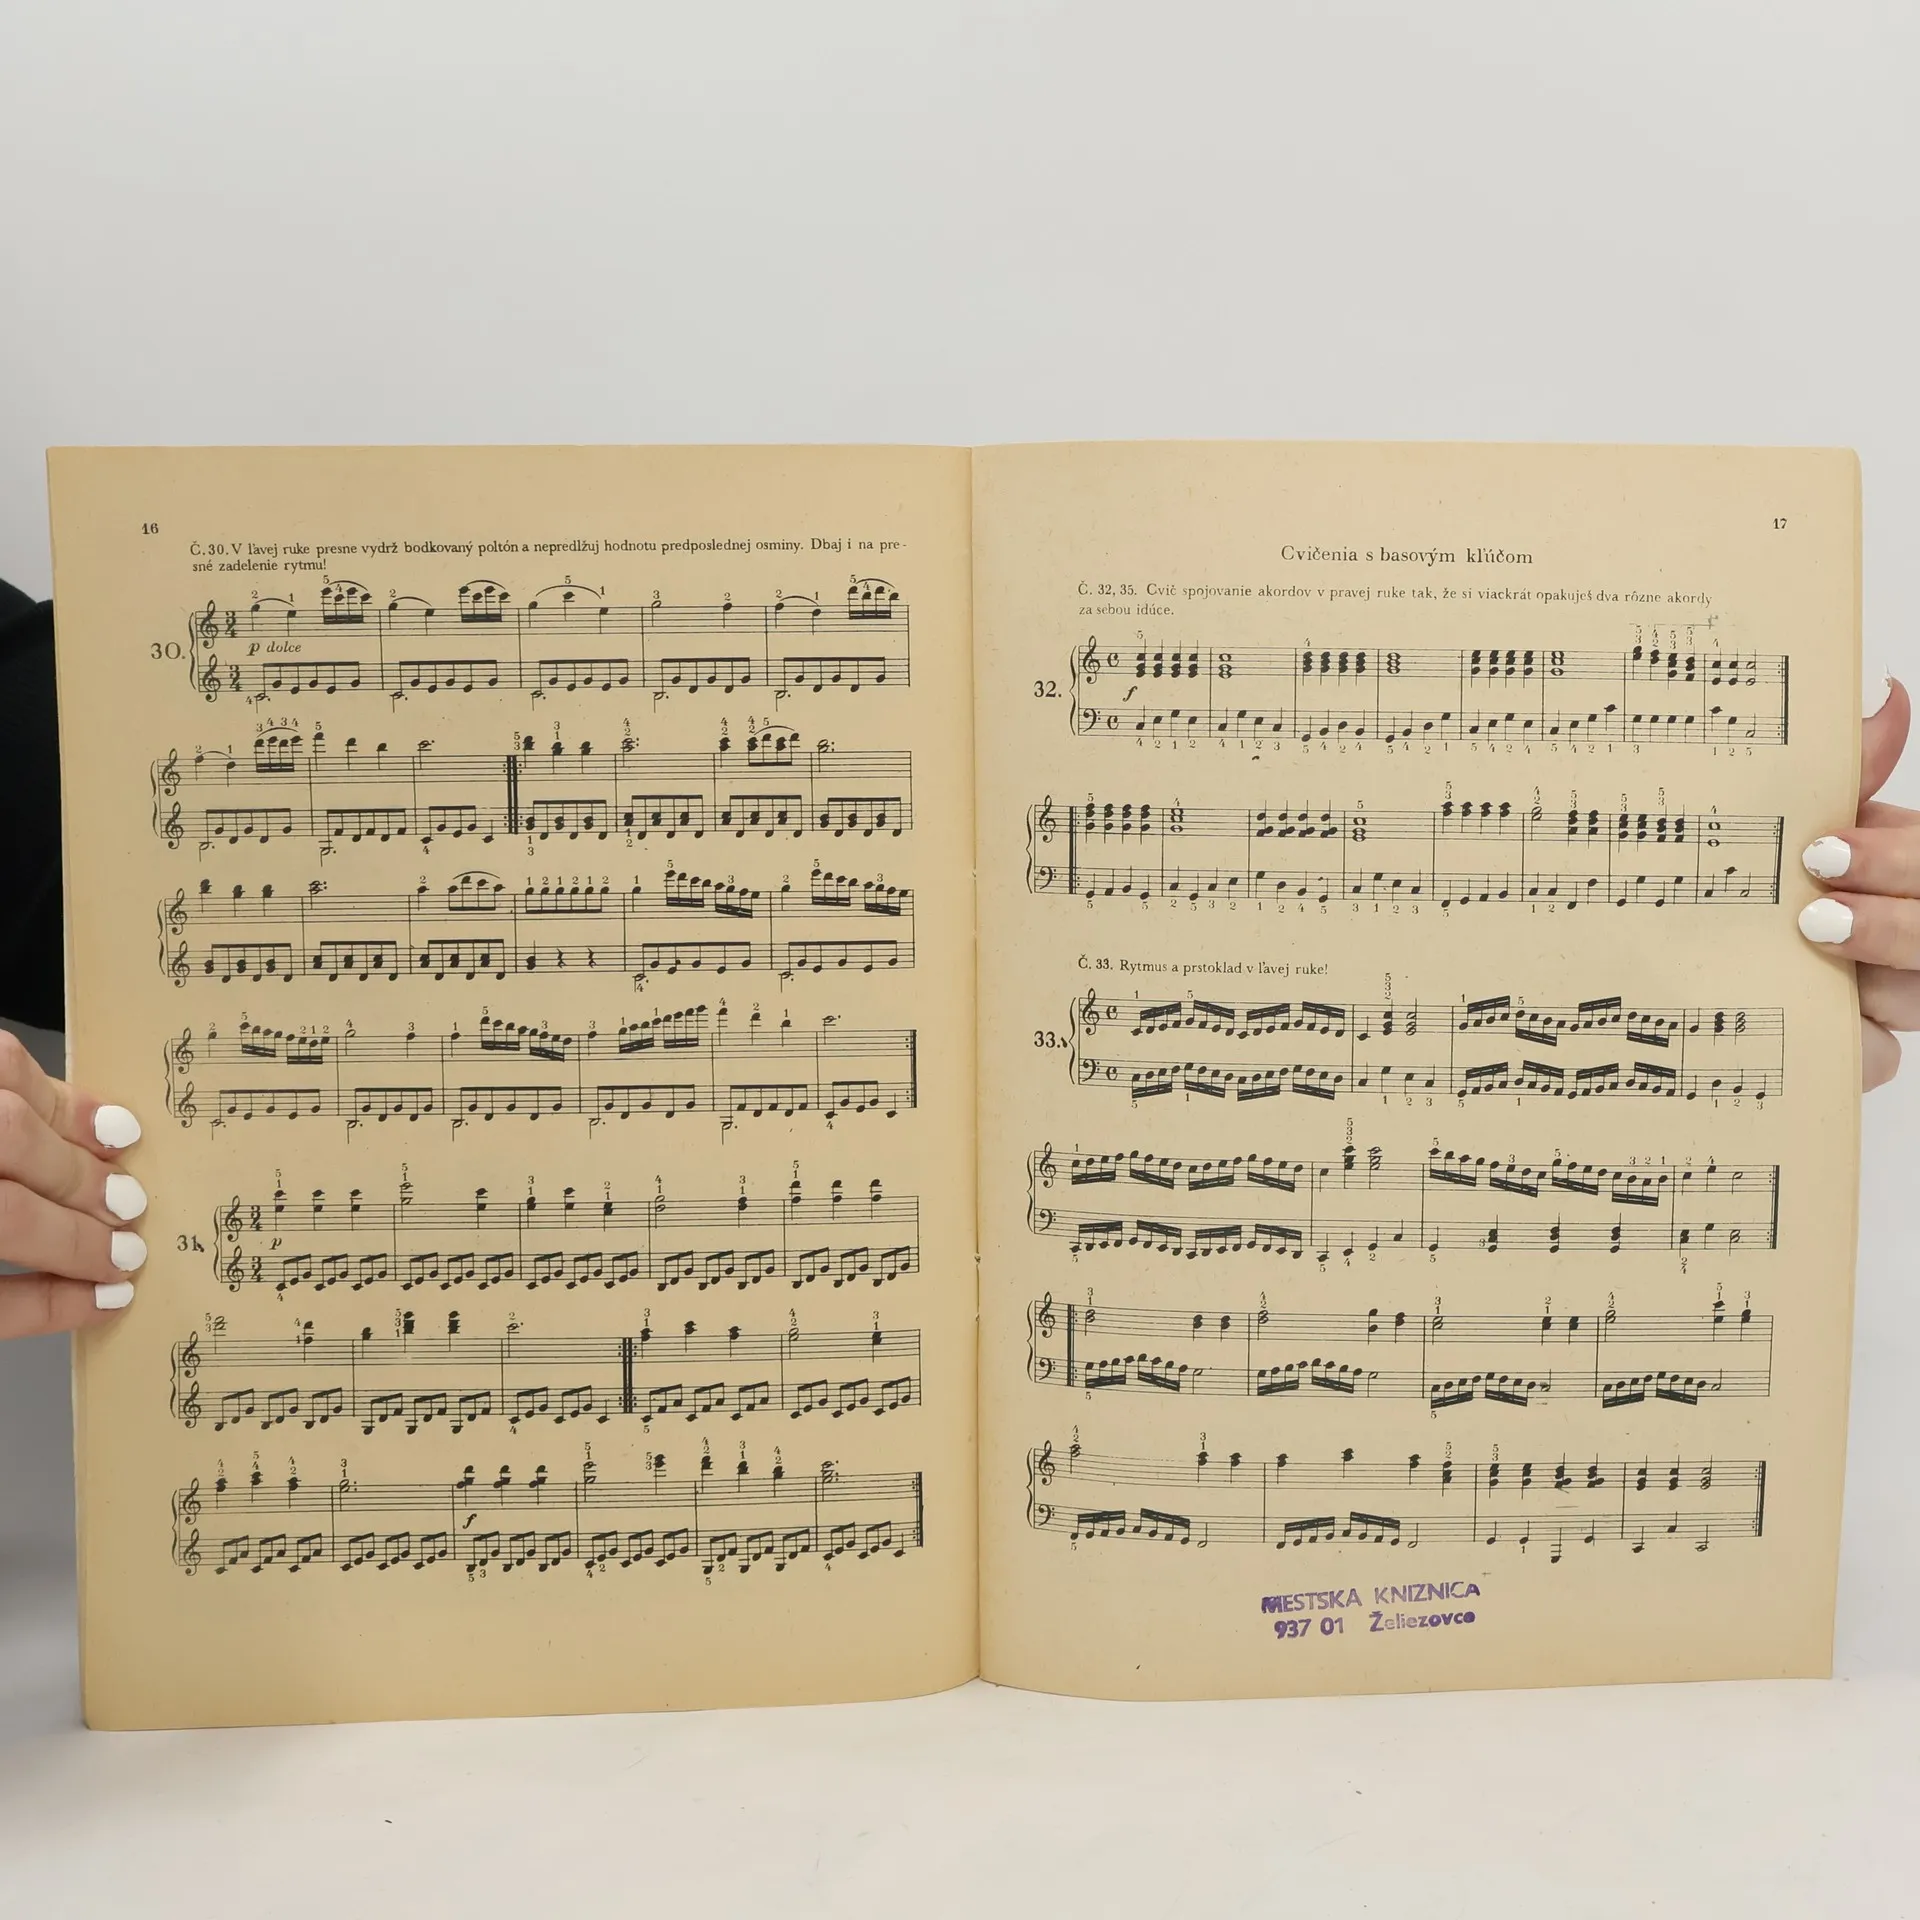 16
Č.30. V ľavej ruke presne vydrž bodkovaný poltón a nepredlžuj hodnotu predposlednej osminy. Dbaj i na pre-
sné zadelenie rytmu!
30.
p dolce
31.
p
f
17
Cvičenia s basovým kľúčom
Č. 32, 35. Cvič spojovanie akordov v pravej ruke tak, že si viackrát opakuješ dva rôzne akordy
za sebou idúce.
32.
f
Č. 33. Rytmus a prstoklad v ľavej ruke!
33.
MESTSKA KNIZNICA
937 01 Želiezovce